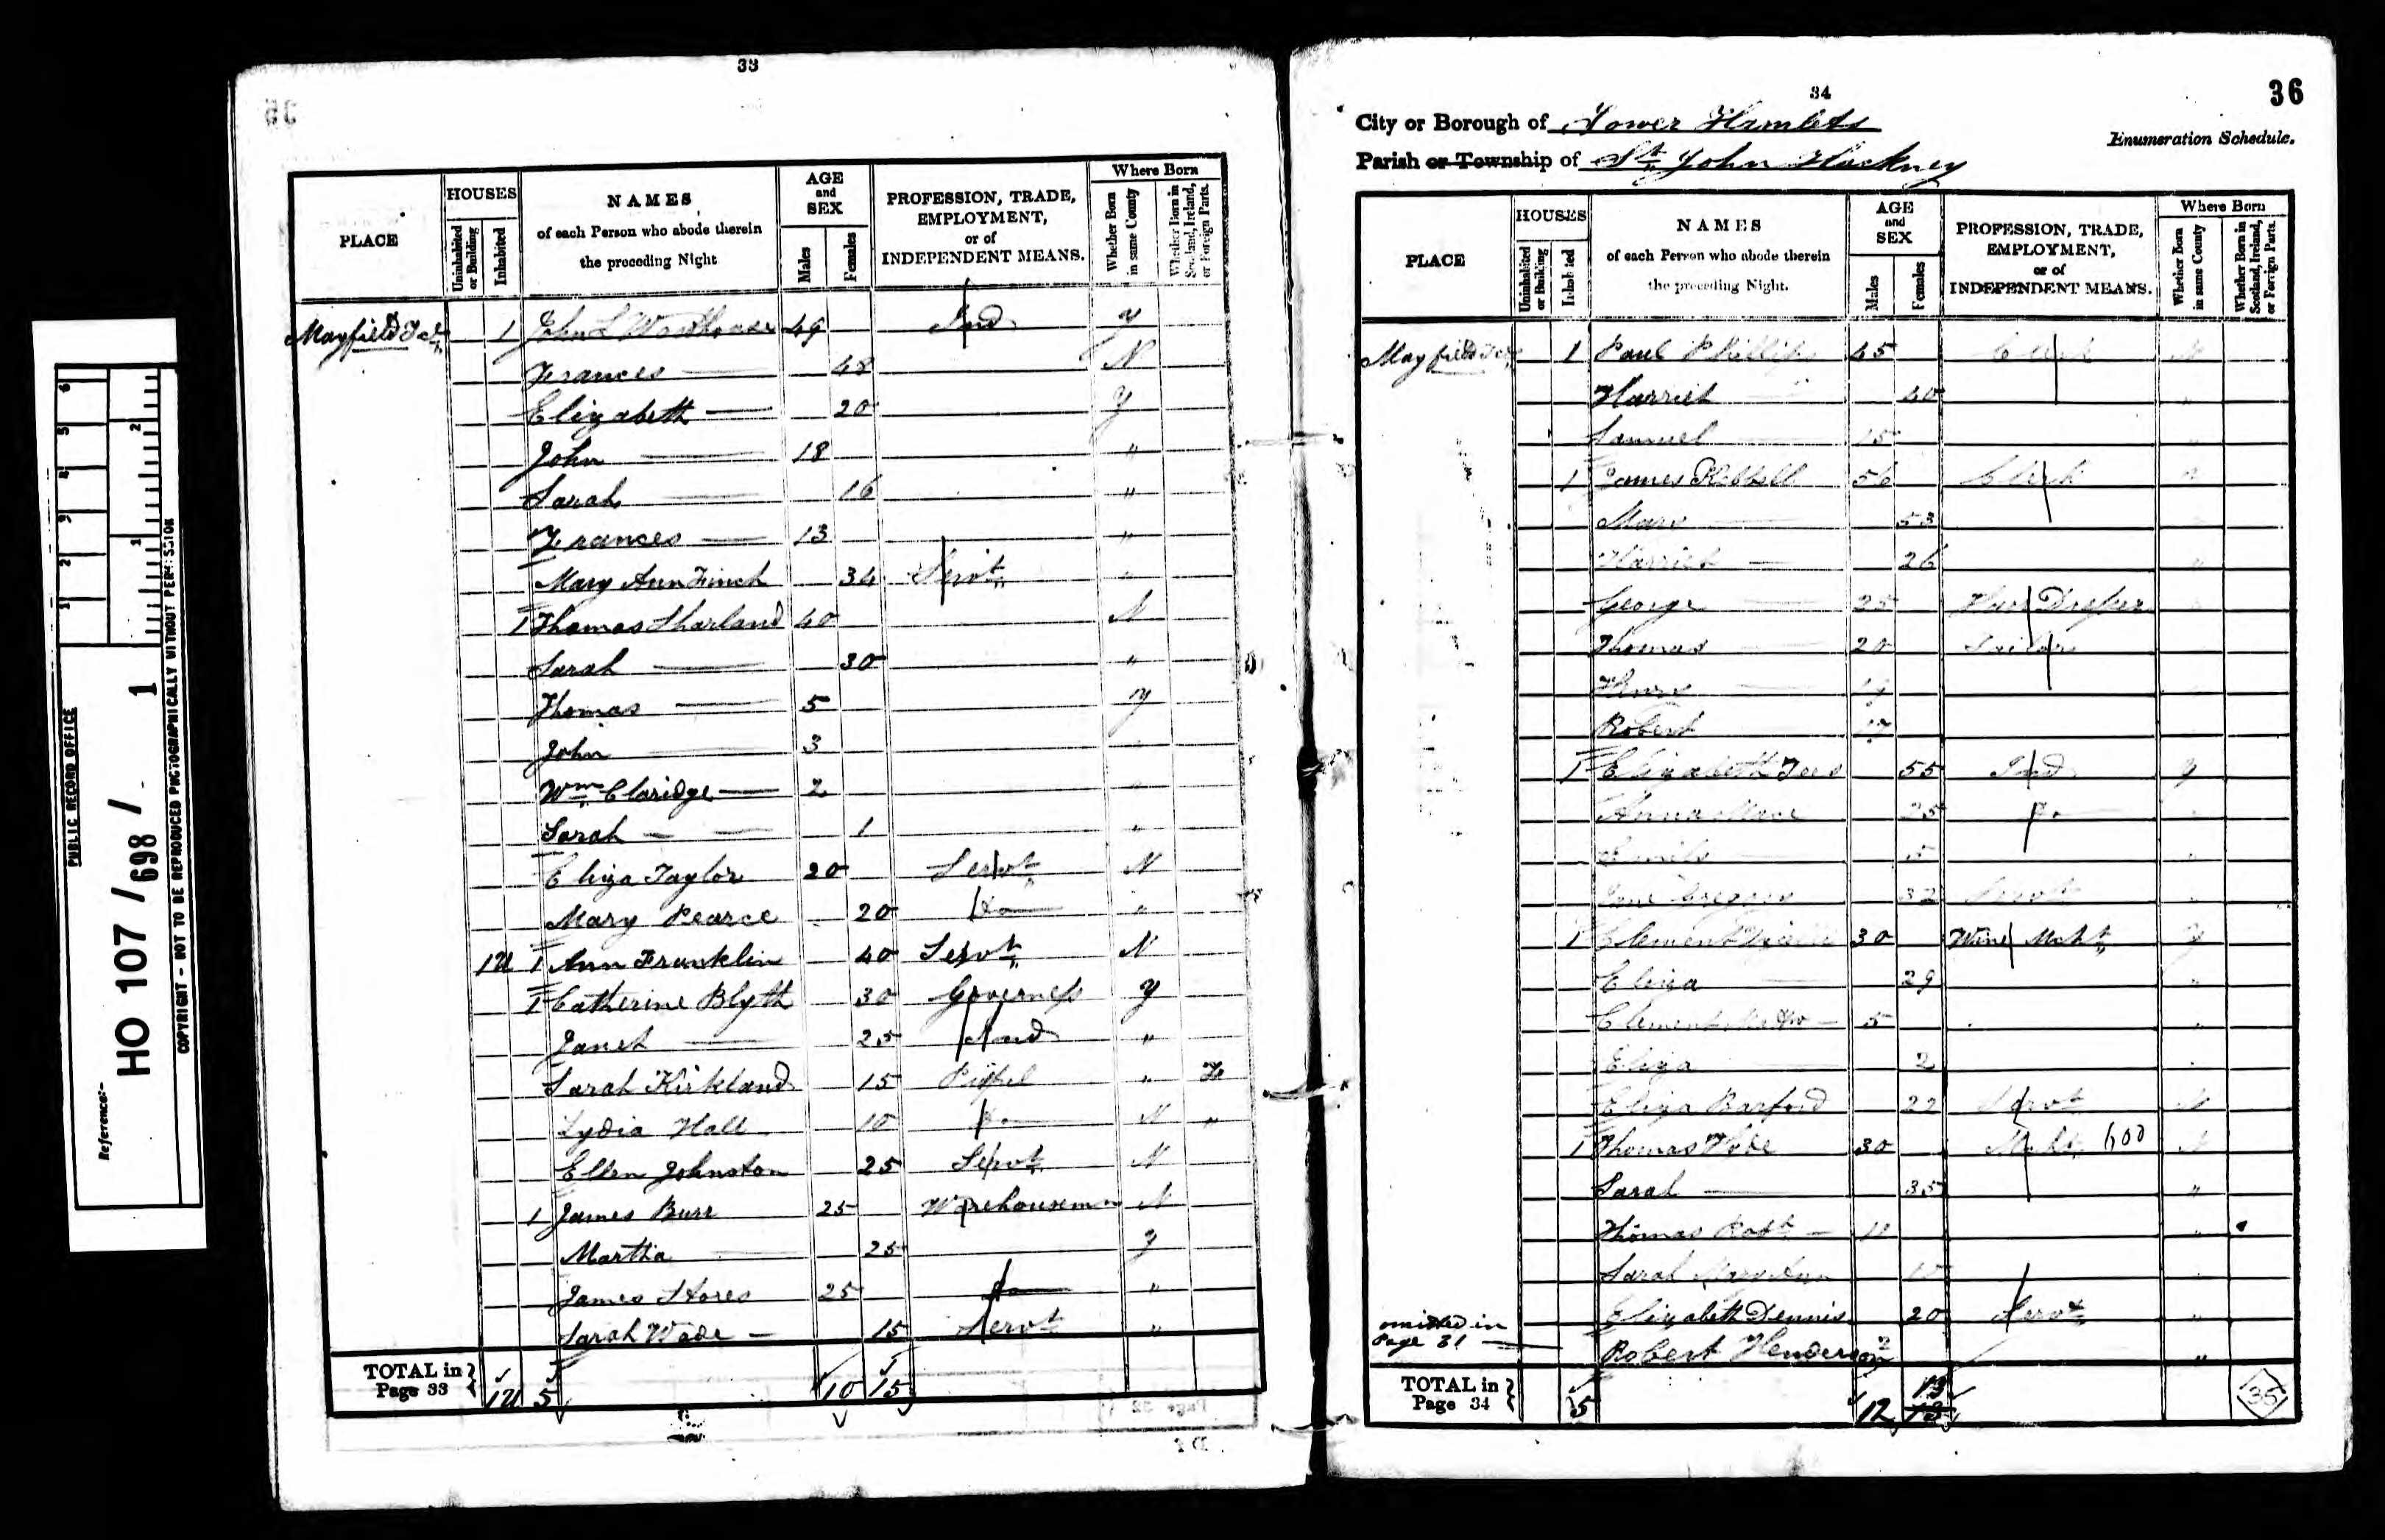 PUBLIC RECORD OFFICE
Reference:-
HO 107 / 698 / 1
COPYRIGHT - NOT TO BE REPRODUCED PHOTOGRAPHICALLY WITHOUT PERMISSION
33
PLACE
HOUSES
Uninhabited or Building
Inhabited
NAMES
of each Person who abode therein
the preceding Night
AGE and SEX
Males
Females
PROFESSION, TRADE, EMPLOYMENT, or of INDEPENDENT MEANS.
Where Born
Whether Born in same County
Whether Born in Scotland, Ireland, or Foreign Parts.
Mayfield Tce 1 John L 49 Ind Y
Frances — 48 N
Elizabeth — 20 Y
John — 18 "
Sarah — 16 "
Frances — 13 "
Mary Ann Finch 34 Servt "
1 Thomas Sharland 40 N
Sarah — 30 "
Thomas — 5 Y
John — 3 "
Wm Claridge — 2 "
Sarah — 1 "
Eliza Taylor 20 Servt N
Mary Pearce 20 Do "
1U 1 Ann Franklin 40 Servt N
1 Catherine Blyth 30 Governess Y
Janet — 25 Ind "
Sarah Kirkland 15 Pupil " F
Lydia Hall 10 Do N "
Ellen Johnston 25 Servt N
1 James Burr 25 Warehouseman N
Martha — 25 Y
James Stores 25 Do "
Sarah Wade — 15 Servt "
TOTAL in Page 33 1U 5 10 15
34
36
City or Borough of Tower Hamlets
Enumeration Schedule.
Parish or Township of St John Hackney
PLACE
HOUSES
Uninhabited or Building
Inhabited
NAMES
of each Person who abode therein
the preceding Night.
AGE and SEX
Males
Females
PROFESSION, TRADE, EMPLOYMENT, or of INDEPENDENT MEANS.
Where Born
Whether Born in same County
Whether Born in Scotland, Ireland, or Foreign Parts.
Mayfield Tce 1 Paul Phillips 45 Clerk N
Harriet 40 "
Samuel 15 "
1 James 56 Clerk
Mary — 53
Harriet — 26 "
George — 25 Hair Dresser
Thomas — 20
Henry — 19
Robert 17
1 Elizabeth 55 Ind Y
Anna 25 Do
Emily — 5 "
Jane Gregory 32 Servt "
1 Clement 30 Wine Mcht Y
Eliza — 29 "
Clement — 5 "
Eliza — 2 "
Eliza Barford 22 Servt N
1 Thomas 30 Mcht 600 N
Sarah — 35 "
Thomas Robt — 11 "
Sarah Mary Ann 10
Elizabeth Dennis 20 Servt "
omitted in Page 31 — Robert Henderson 2 "
TOTAL in Page 34 5 12 13
35